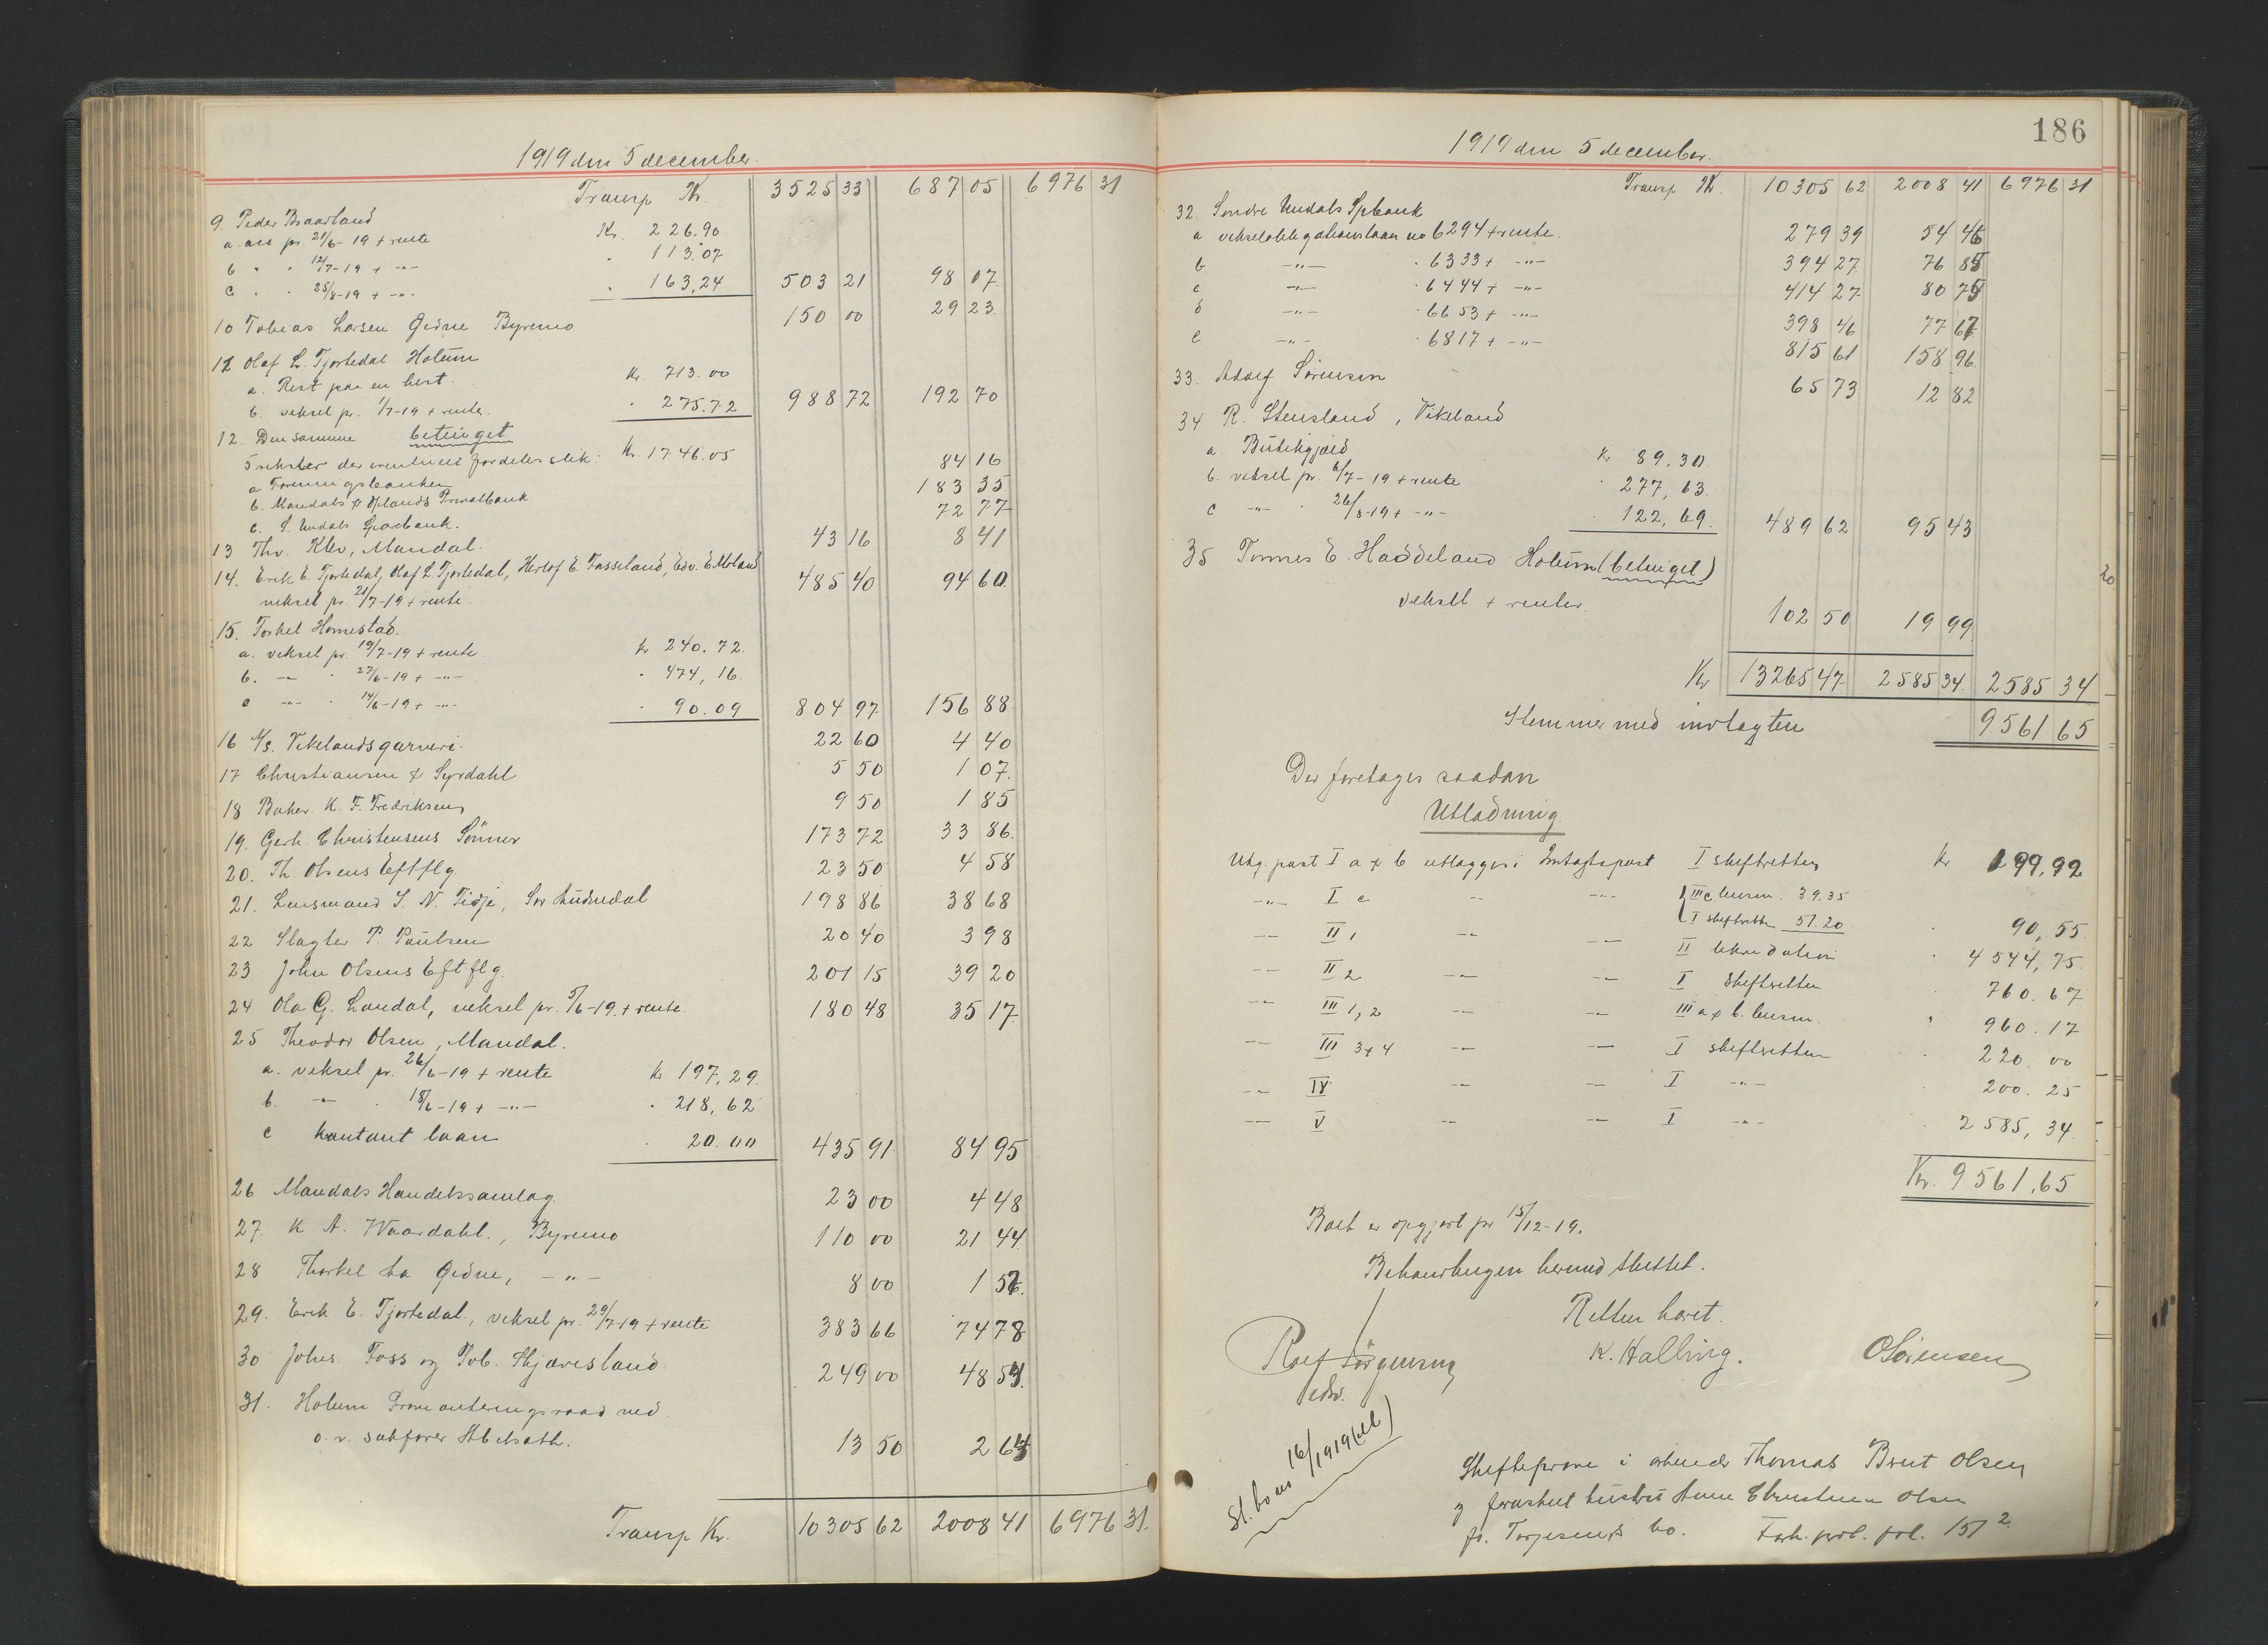 1919 den 5 december.
Transp Kr. 3525 33 687 05 6976 31
9 Peder Braarland
a. acc pr. 21/6-19 + rente Kr. 226.90
b " " 12/7-19 + -"- " 113.07
c " " 25/8-19 + -"- " 163,24 503 21 98 07
10 Tobias Larsen Gidne Byremo 150 00 29 23
11 Olaf L. Tjortedal Holum
a. Rest paa en hest. Kr. 713.00
b. veksel pr. 1/7-19 + renter. " 275.72 988 72 192 70
12. Den samme betinget
5 veksler der eventuelt fordeles slik: Kr. 1746.05
a Foreningsbanken 84 16
b. Mandals & Oplands Privatbank 183 35
c. S. Undals Sparebank. 72 77
13 Thv. Klev, Mandal. 43 16 8 41
14. Erik E. Tjortedal, Olaf L. Tjortedal, Herlof E. Fasseland, Edv. E Moland
veksel pr. 21/7-19 + rente. 485 40 94 60
15. Torkel Homestad.
a. veksel pr. 19/7-19 + rente. kr 240.72
b. -"- " 27/6-19 + -"- " 474,16
c -"- " 14/6-19 + -"- " 90.09 804 97 156 88
16 A/s. Vikelands garveri. 22 60 4 40
17 Christiansen & Syrdahl 5 50 1 07
18 Baker K. F. Fredriksen 9 50 1 85
19. Gerh. Christensens Sønner 173 72 33 86
20. Th. Olsens Eftflg. 23 50 4 58
21. Lensmand S. N. Tidje, Sør Audnedal 198 86 38 68
22 Slagter P. Paulsen 20 40 3 98
23 John Olsens Eftflg. 201 15 39 20
24 Ola G. Laudal, veksel pr. 5/6-19. + rente. 180 48 35 17
25 Theodor Olsen, Mandal.
a. veksel pr. 26/6-19 + rente kr 197,29.
b. -"- " 18/6-19 + -"- " 218,62
c kontant laan " 20.00 435 91 84 95
26 Mandals Handelssamlag. 23 00 4 48
27. K. A. Waardahl., Byremo 110 00 21 44
28 Thorkel La Gidne, -"- 8 00 1 57
29. Erik E. Tjortedal, veksel pr. 29/7-19 + rente 383 66 74 78
30 Johs. Foss og Tob. Skjævesland 249 00 48 54
31. Holum Provianteringsraad ved
o. r. sakfører Abelseth. 13 50 2 64
Transp Kr. 10305 62 2008 41 6976 31.
186
1919 den 5 december.
Transp Kr. 10305 62 2008 41 6976 31
32. Søndre Undals Spbank
a vekselobligationslaan no 6294 + rente. 279 39 54 46
b. -"- " 6333 + -"- 394 27 76 85
c -"- " 6444 + -"- 414 27 80 75
d -"- " 6653 + -"- 398 46 77 67
e -"- " 6817 + -"- 815 61 158 96
33. Adolf Sørensen 65 73 12 82
34 R. Stensland, Vikeland
a. Butikgjæld Kr 89,30
b. veksel pr. 6/7-19 + rente " 277,63.
c -"- " 26/8-19 + -"- " 122,69. 489 62 95 43
35 Tønnes E. Haddeland Holum (betinget)
veksel + renter. 102 50 19 99
Kr 13265 47 2585 34. 2585 34
Stemmer med indtægten 9561 65
Der foretages saadan
Utlodning.
Utg. post I a & b utlægges i Indtægtspost I skifteretten kr 199,92
-"- I c -"- -"- III c lensm. 39.35
I skifteretten 51.20 " 90,55.
-"- II 1 -"- -"- II likvidation " 4544,75.
-"- II 2 -"- -"- I skifteretten 760.67
-"- III 1,2 -"- -"- III a & b. lensm. " 960.17
-"- III 3+4 -"- -"- I skifteretten 220.00
-"- IV -"- -"- I -"- 200.25
-"- V -"- -"- I -"- 2585,34.
Kr. 9561,65
Boet er opgjort pr 15/12-19.
Behandlingen hermed sluttet.
Retten hævet.
Rolf Jörgensen K. Halling. O Sörensen
edsv.
Sl. bo no 16/1919 (
Skifteprøve i arbeider Thomas Brut Olsen
og forutskutt hustru Anne Christine Olsen
fø. Torjesens bo. Forh. prot. fol. 151 2.
20